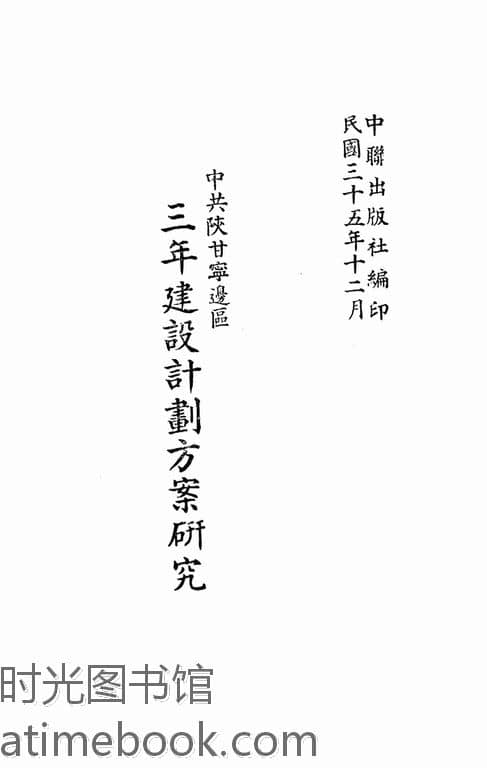 中聯出版社編印
民國三十五年十二月
中共陝甘寧邊區
三年建設計劃方案研究
时光图书馆
atimebook.com